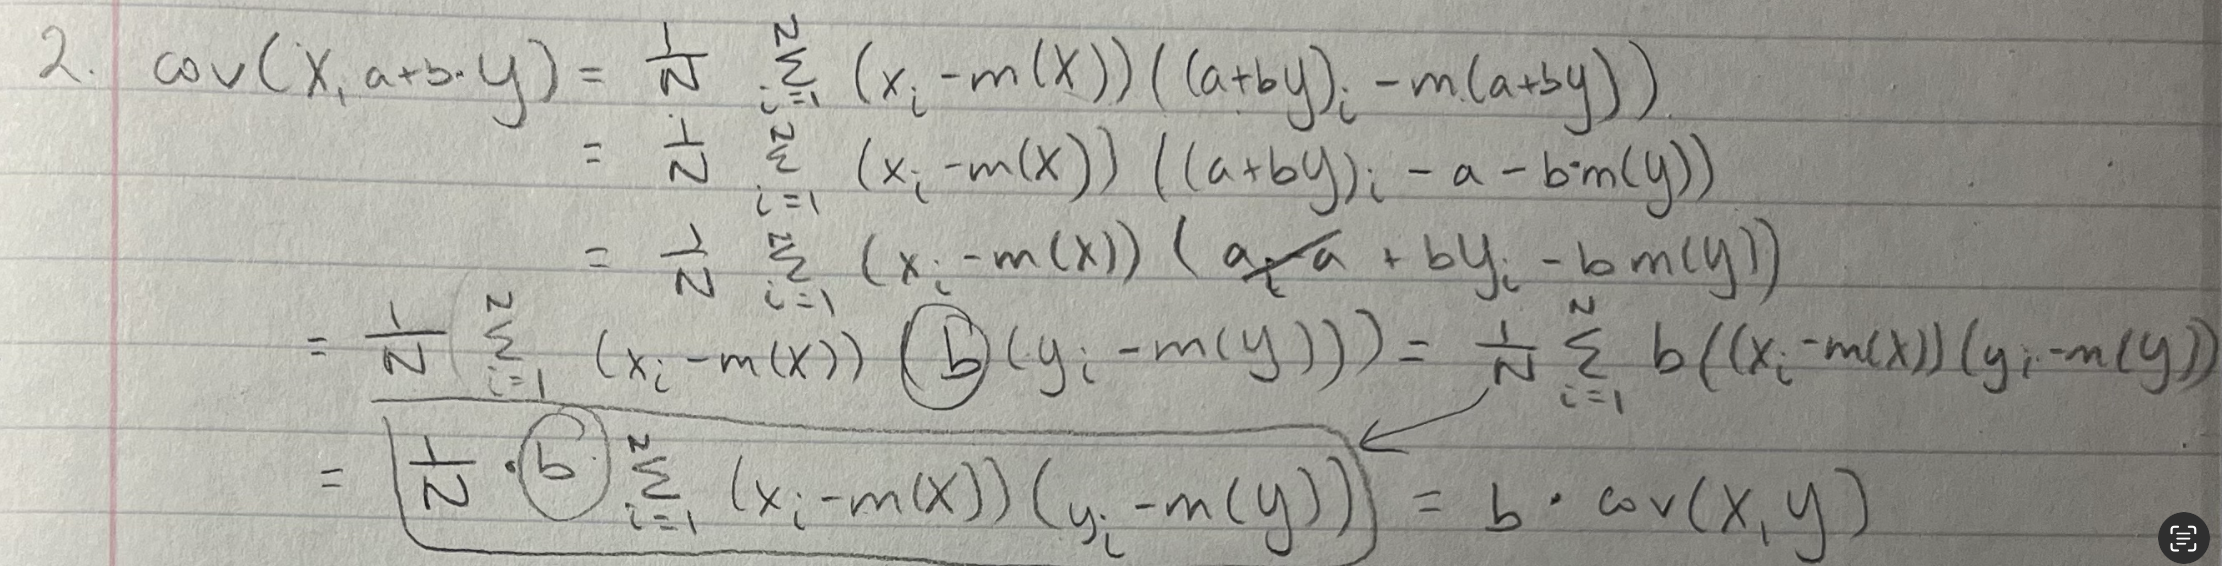 2. cov(X, a+b·y) = 1/N Σ_{i=1}^{N} (x_i - m(X))((a+by)_i - m(a+by))
= 1/N Σ_{i=1}^{N} (x_i - m(X))((a+by)_i - a - b·m(y))
= 1/N Σ_{i=1}^{N} (x_i - m(X))(a_i - a + by_i - b m(y))
= 1/N (Σ_{i=1}^{N} (x_i - m(X))(b(y_i - m(y)))) = 1/N Σ_{i=1}^{N} b((x_i - m(X))(y_i - m(y))
= 1/N · b Σ_{i=1}^{N} (x_i - m(X))(y_i - m(y)) = b · cov(X, y)